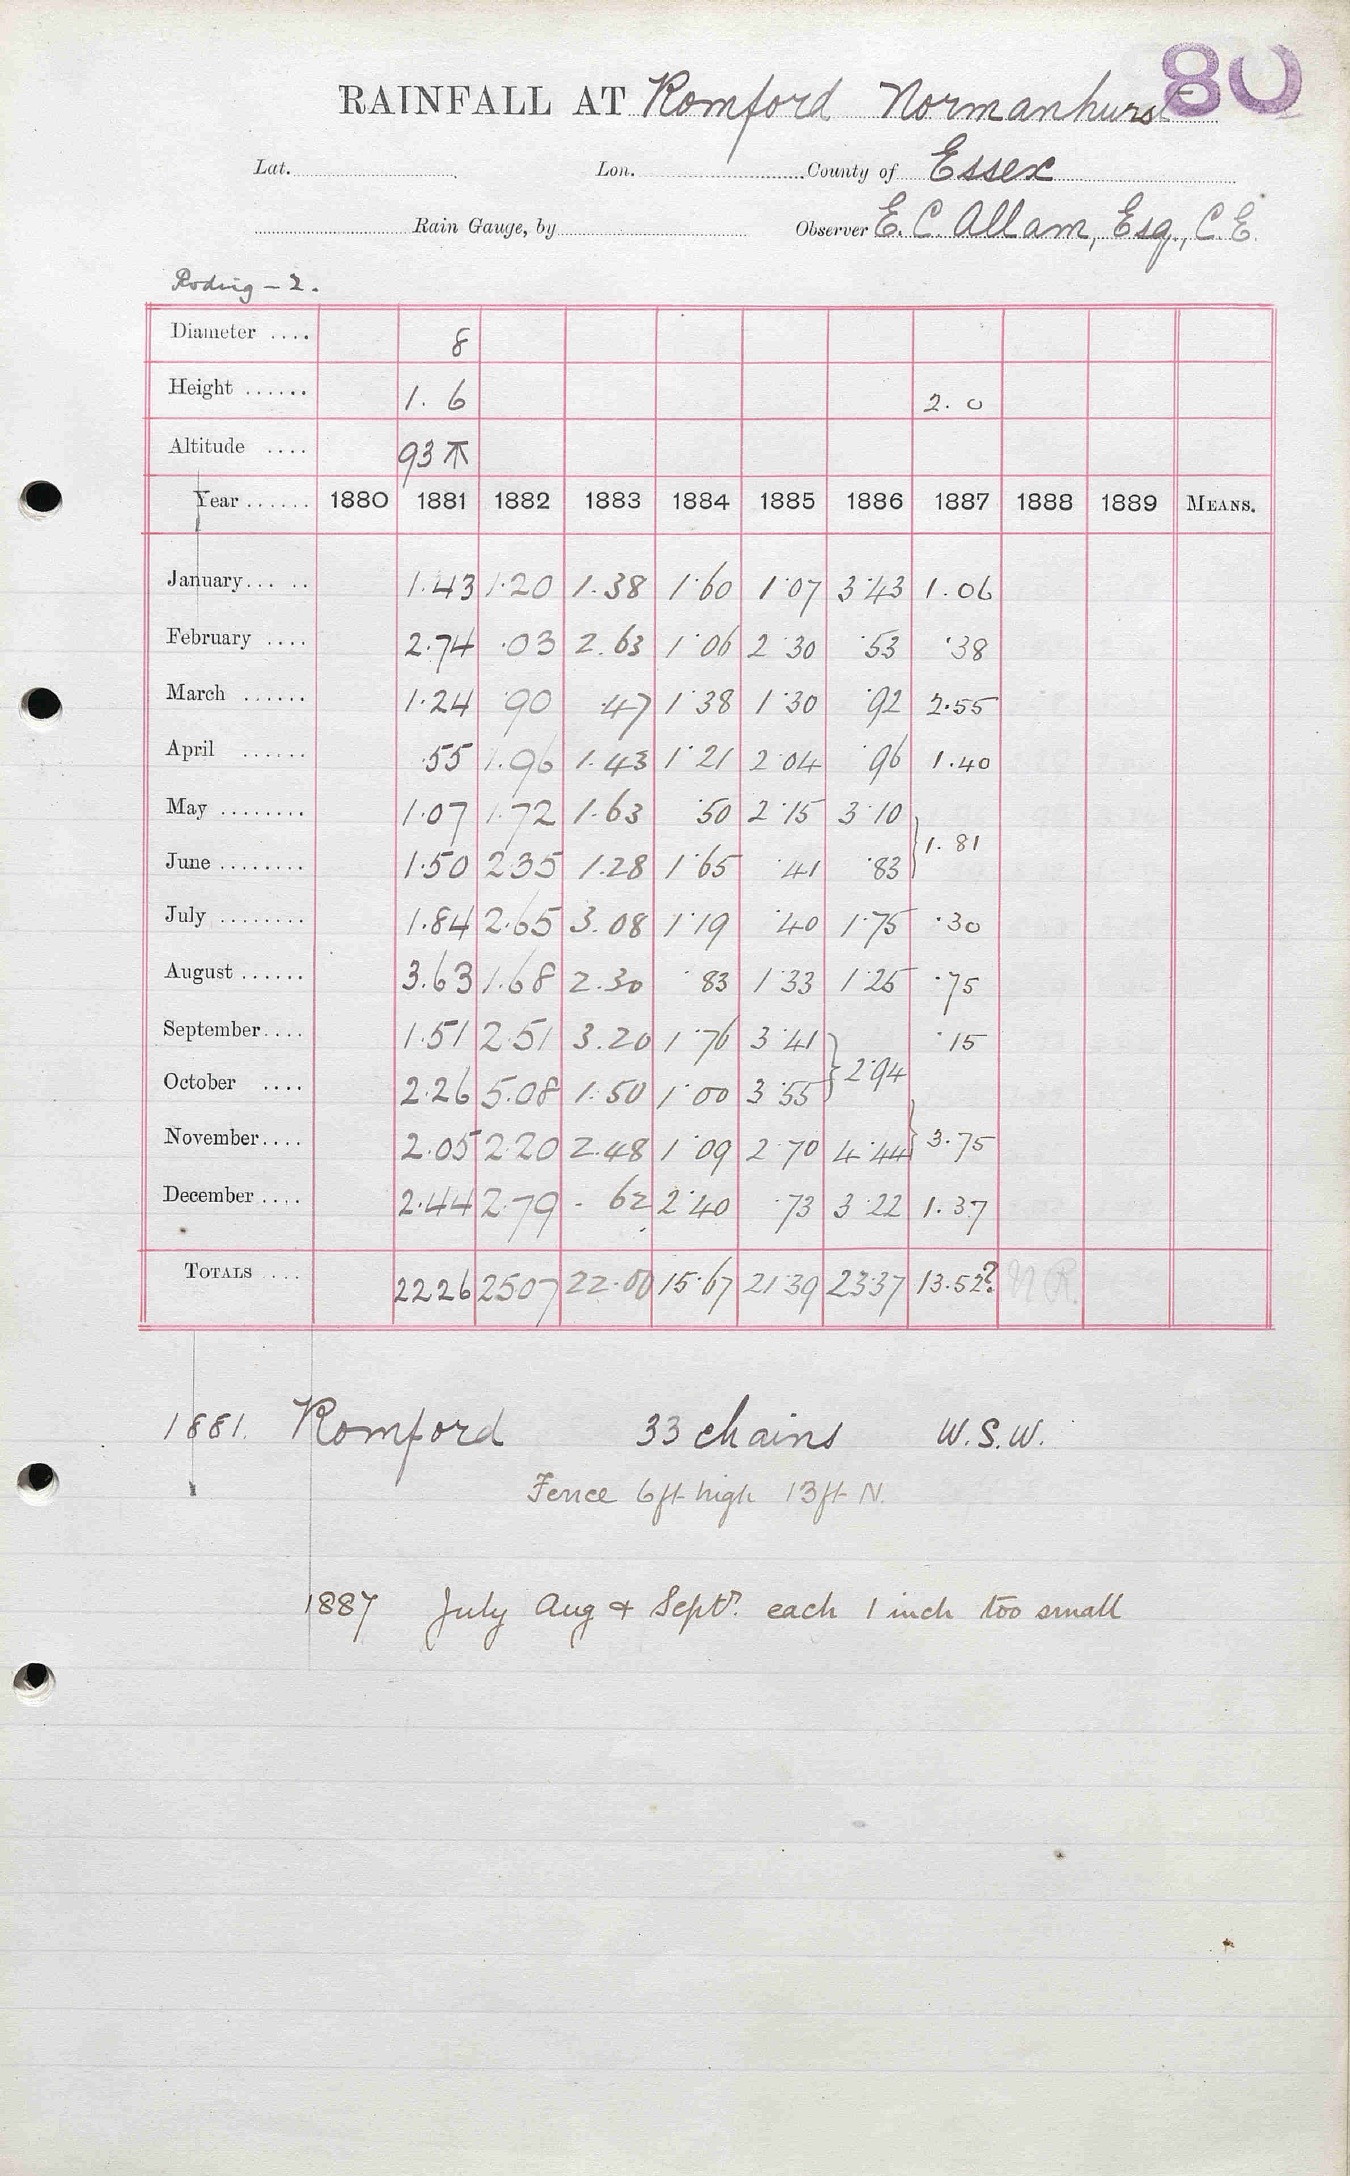 80
RAINFALL AT Romford Normanhurst
Lat. Lon. County of Essex
Rain Gauge, by Observer E. C. Allam, Esq., C.E.
Roding - 2.
Diameter .... 8
Height ...... 1. 6 2. 0
Altitude .... 93
Year ...... 1880 1881 1882 1883 1884 1885 1886 1887 1888 1889 MEANS.
January... .. 1.43 1.20 1.38 1.60 1.07 3.43 1.06
February .... 2.74 .03 2.63 1.06 2.30 .53 .38
March ...... 1.24 .90 .47 1.38 1.30 .92 2.55
April ...... .55 1.96 1.43 1.21 2.04 .96 1.40
May ........ 1.07 1.72 1.63 .50 2.15 3.10
1.81
June ........ 1.50 2.35 1.28 1.65 .41 .83
July ........ 1.84 2.65 3.08 1.19 .40 1.75 .30
August ...... 3.63 1.68 2.30 .83 1.33 1.25 .75
September.... 1.51 2.51 3.20 1.76 3.41 .15
2.94
October .... 2.26 5.08 1.50 1.00 3.55
November.... 2.05 2.20 2.48 1.09 2.70 4.44 3.75
December .... 2.44 2.79 .62 2.40 .73 3.22 1.37
TOTALS .... 22 26 25 07 22.00 15.67 21 39 23 37 13.52? N R.
1881. Romford 33 chains W.S.W.
Fence 6ft high 13ft N.
1887 July Aug + Septr. each 1 inch too small